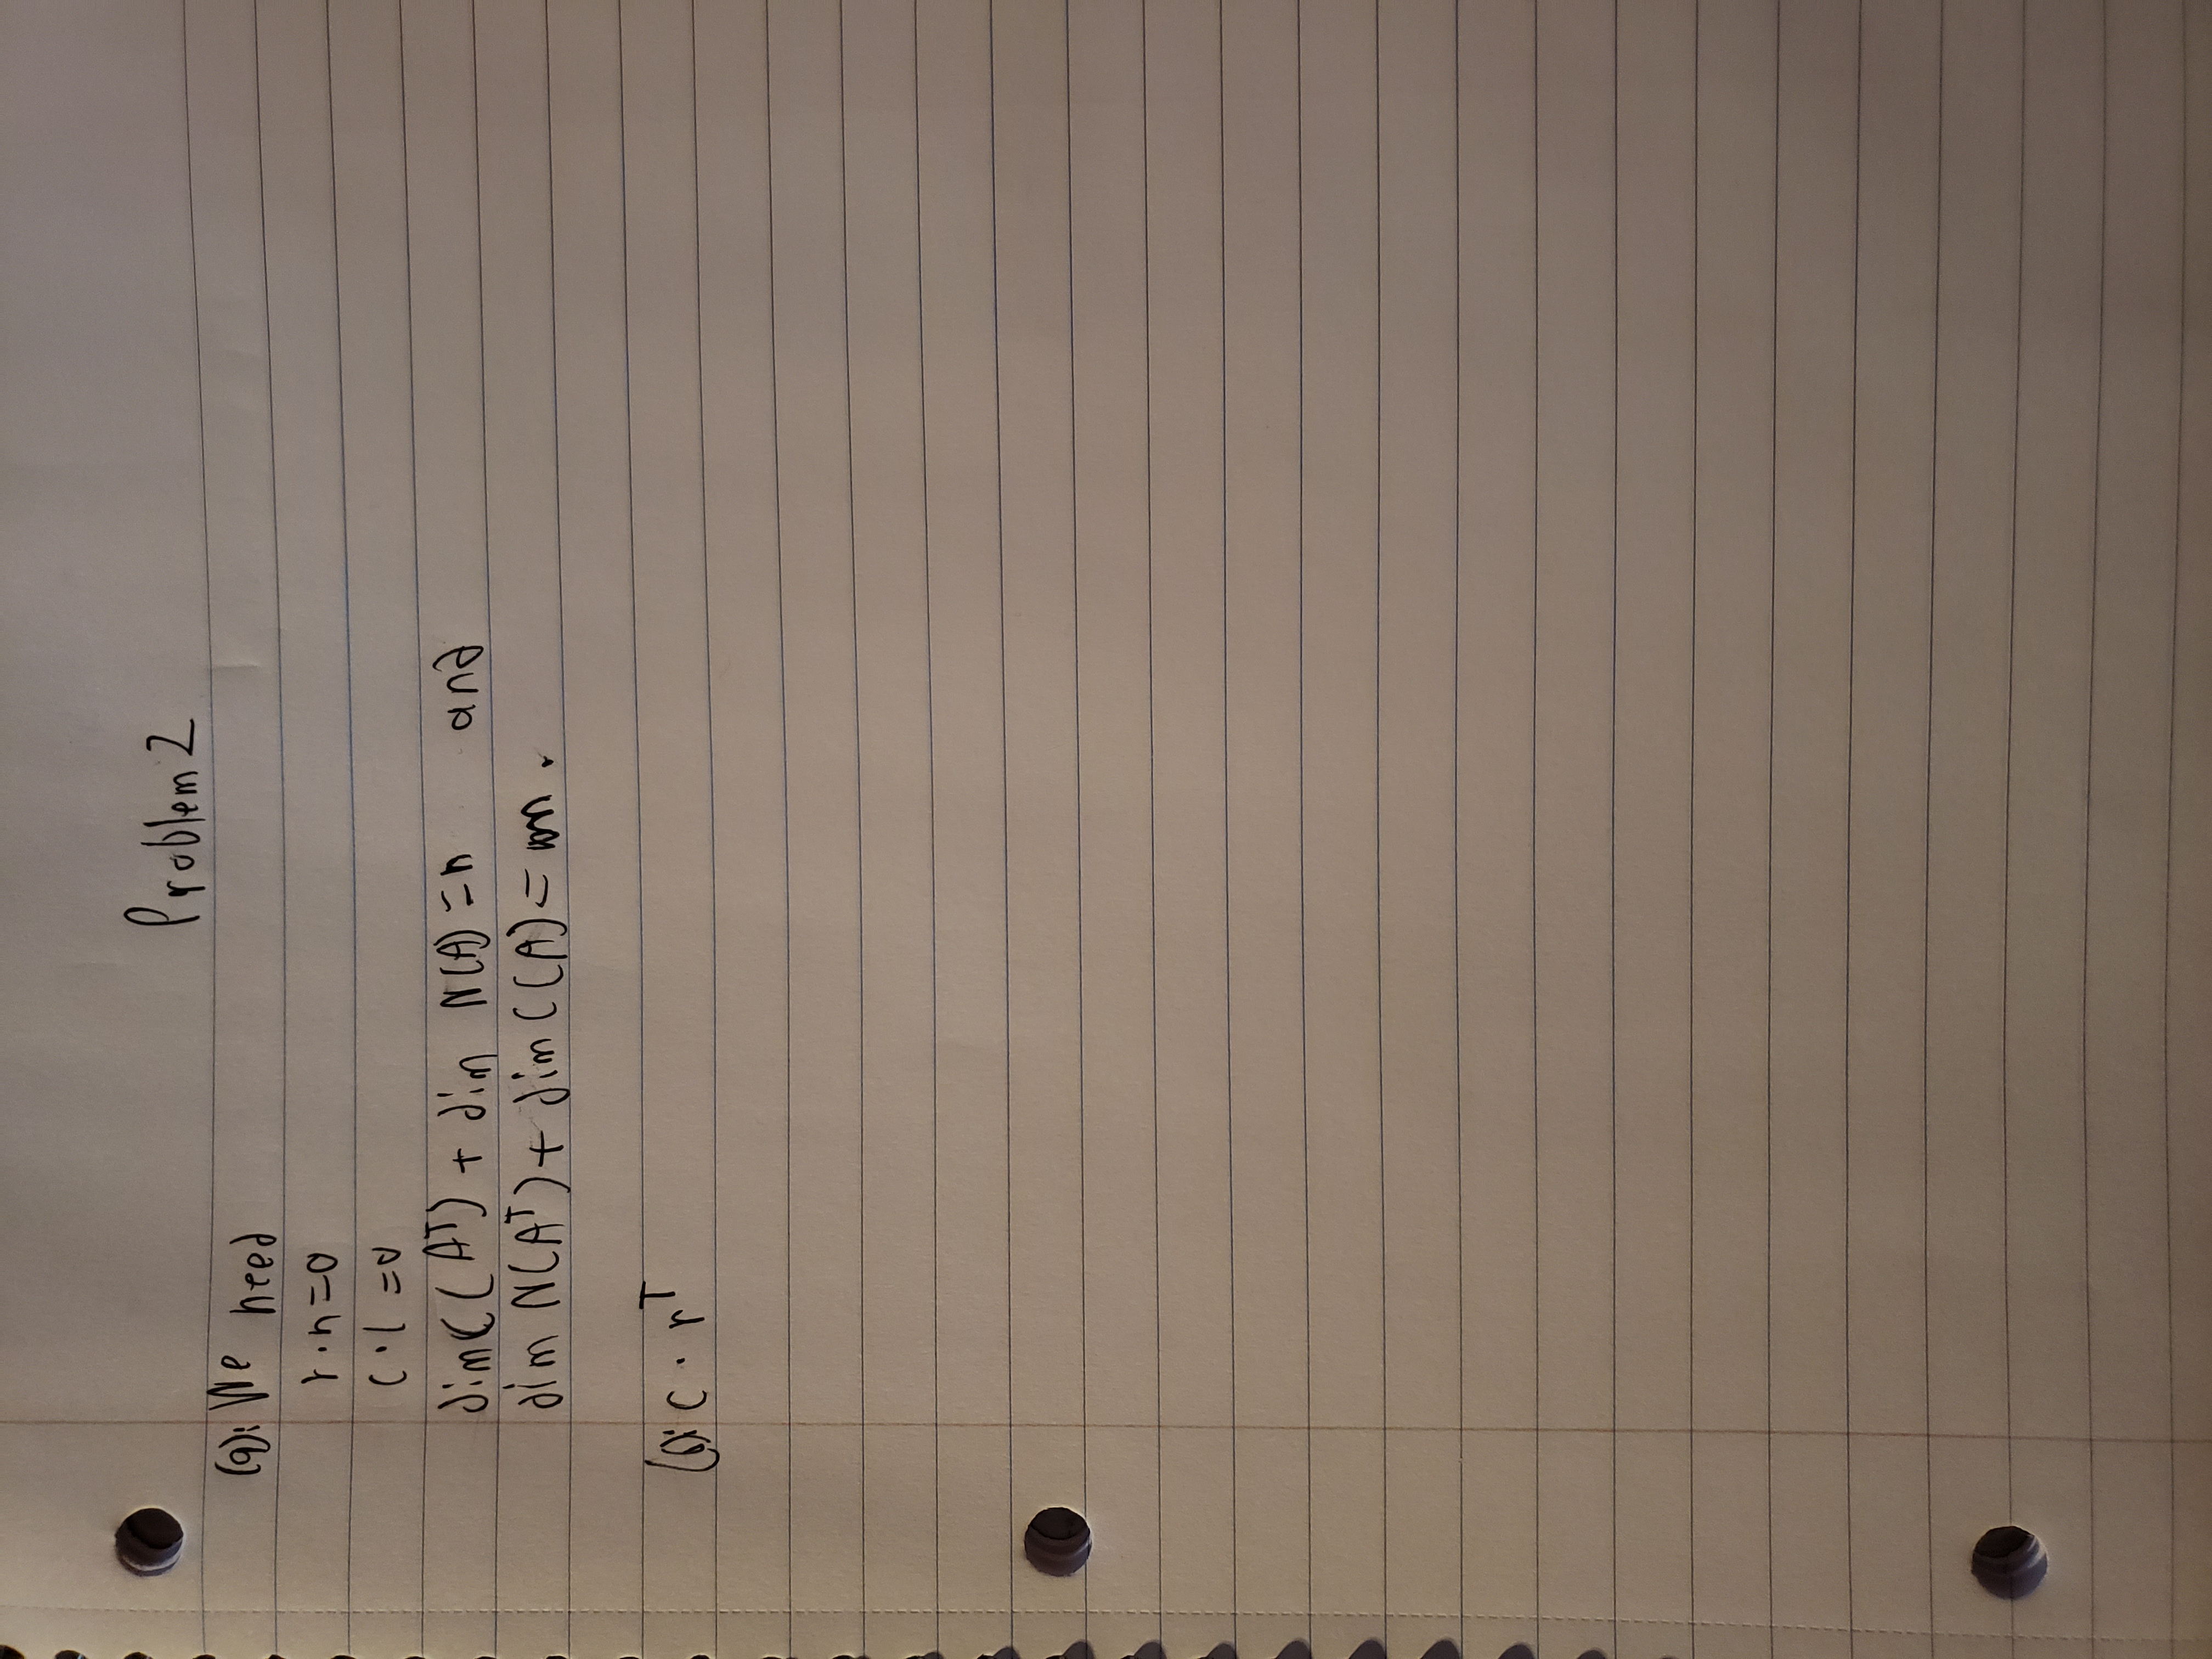 Problem 2
(a): We need
r · n = 0
c · l = 0
dim C(Aᵀ) + dim N(A) = n and
dim N(Aᵀ) + dim C(A) = m.
(b): c · rᵀ